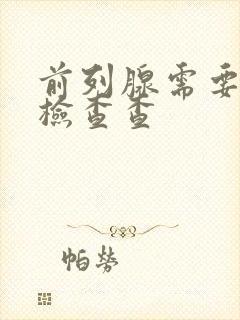 前列腺需要
檢查查
帕勞